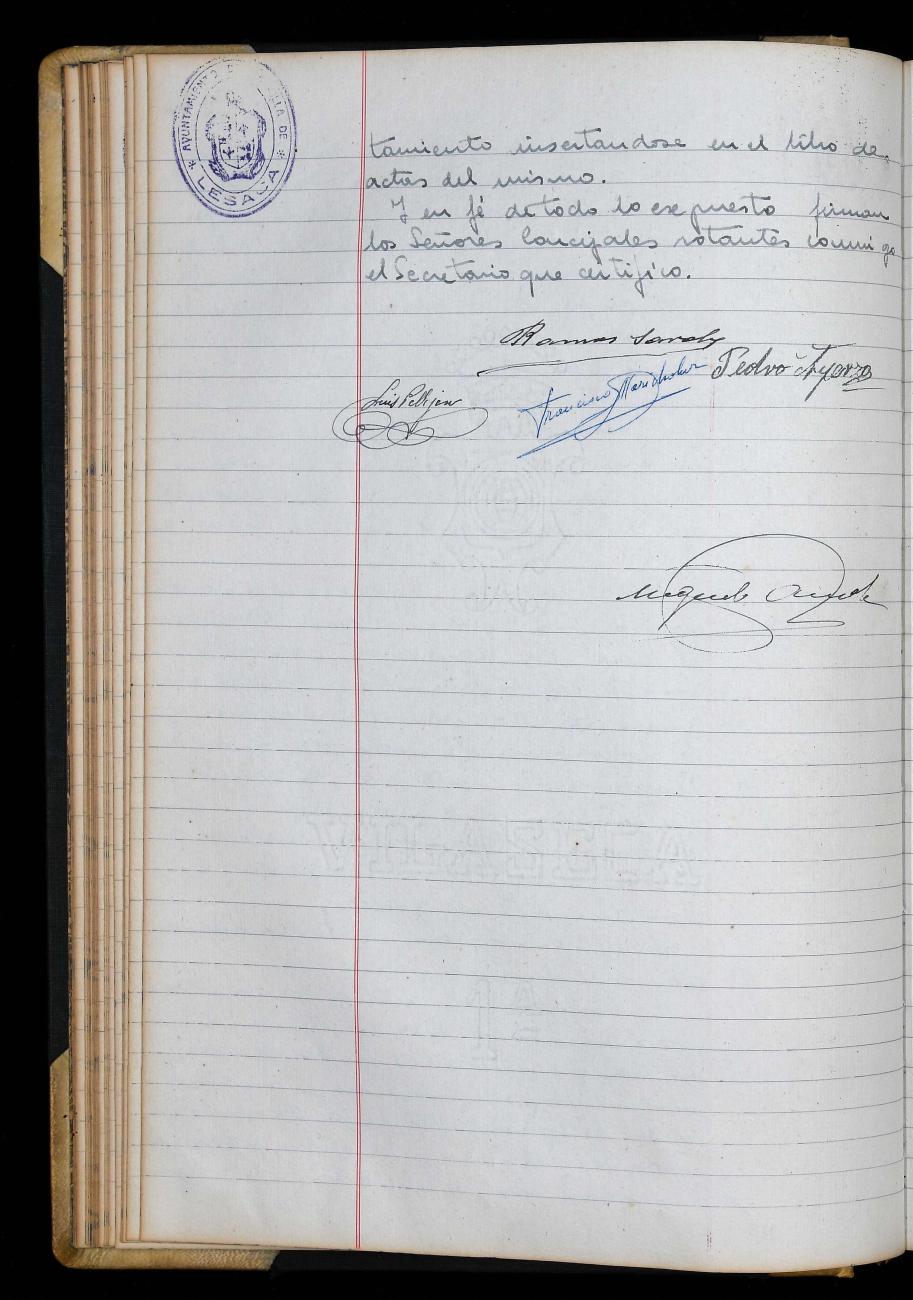 AYUNTAMIENTO DE LA VILLA DE
* LESACA *
tamiento insertandose en el libro de
actas del mismo.
Y en fé de todo lo expuesto firman
los Señores Concejales votantes conmigo
el Secretario que certifico.
Ramon
Pedro
Luis
Francisco